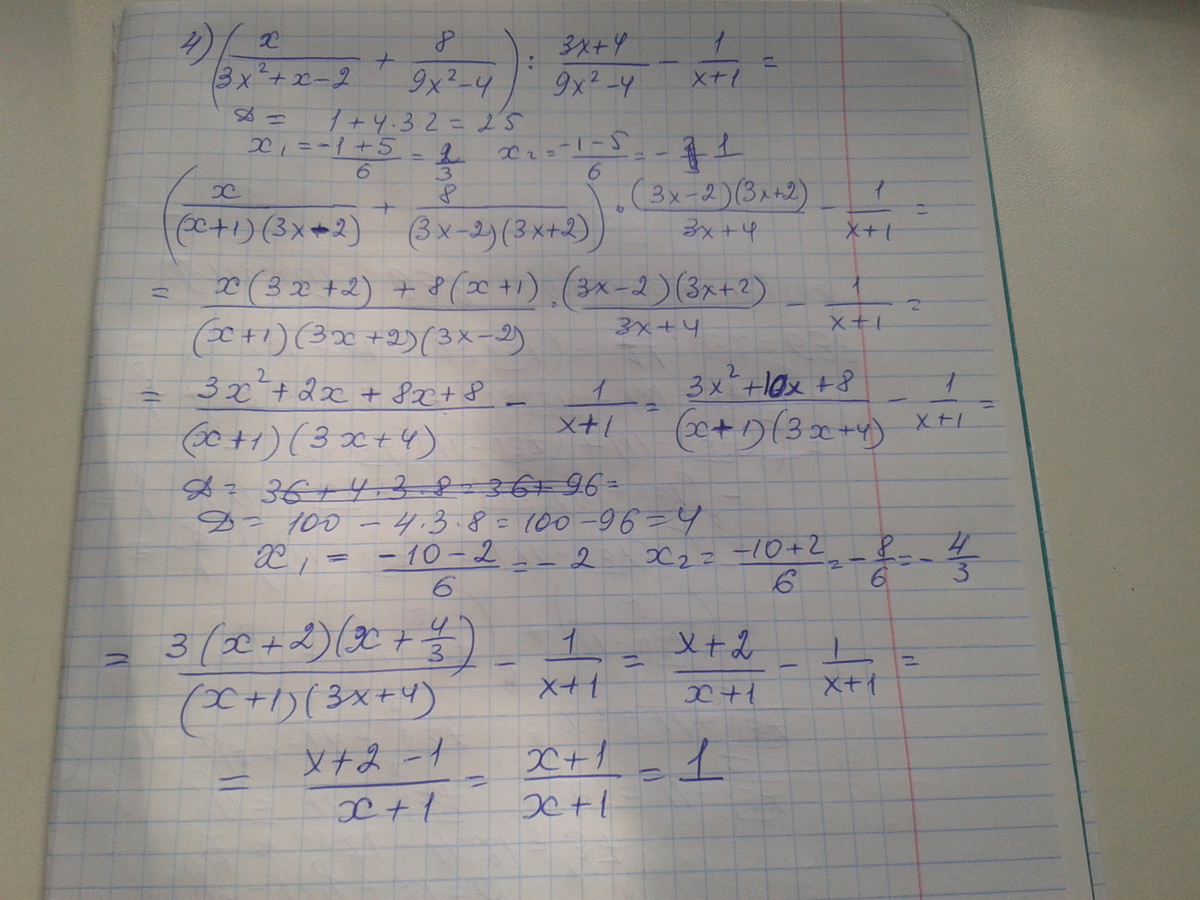 4) (x/(3x²+x-2) + 8/(9x²-4)) : (3x+4)/(9x²-4) - 1/(x+1) =
D = 1+4·3 2 = 25
x₁ = (-1+5)/6 = 2/3 x₂ = (-1-5)/6 = - 1
(x/((x+1)(3x-2)) + 8/((3x-2)(3x+2))) · ((3x-2)(3x+2))/(3x+4) - 1/(x+1) =
= (x(3x+2) + 8(x+1))/((x+1)(3x+2)(3x-2)) · ((3x-2)(3x+2))/(3x+4) - 1/(x+1) =
= (3x²+2x+8x+8)/((x+1)(3x+4)) - 1/(x+1) = (3x²+10x+8)/((x+1)(3x+4)) - 1/(x+1) =
D = 36+4·3·8=36+96=
D = 100 - 4·3·8 = 100-96 = 4
x₁ = (-10-2)/6 = -2 x₂ = (-10+2)/6 = -8/6 = -4/3
= (3(x+2)(x+4/3))/((x+1)(3x+4)) - 1/(x+1) = (x+2)/(x+1) - 1/(x+1) =
= (x+2-1)/(x+1) = (x+1)/(x+1) = 1